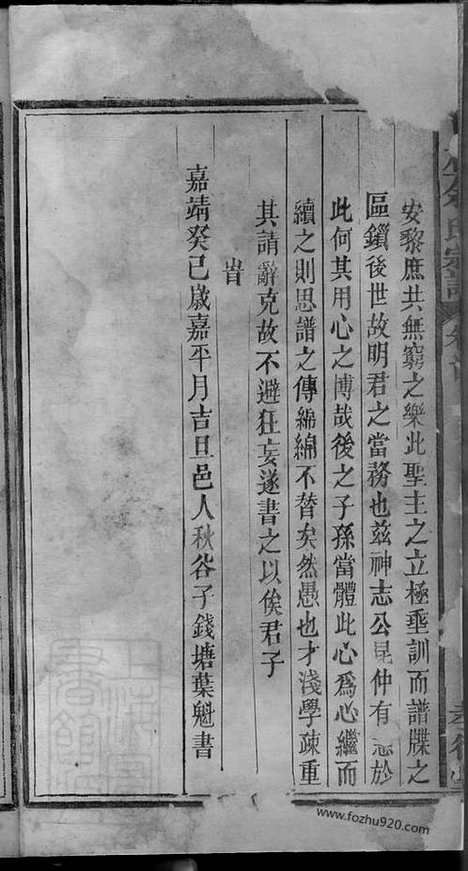 安黎庶共無窮之樂此聖主之立極垂訓而譜牒之
區鑽後世故明君之當務也茲神志公昆仲有志於
此何其用心之博哉後之子孫當體此心爲心繼而
續之則思譜之傳綿綿不替矣然愚也才淺學疎重
其請辭克故不避狂妄遂書之以俟君子
旹
嘉靖癸巳歲嘉平月吉旦邑人秋谷子錢塘葉魁書
www.fozhu920.com